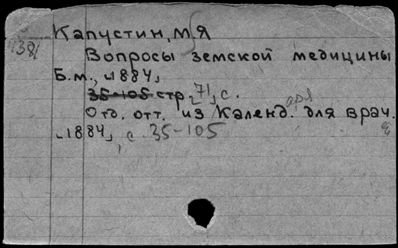 Капустин, М.Я
1381
Вопросы земской медицины
Б.м., 1884,
35-105 стр. 71, с.
Отд. отт. из Календ. для врач.
1884, с. 35-105